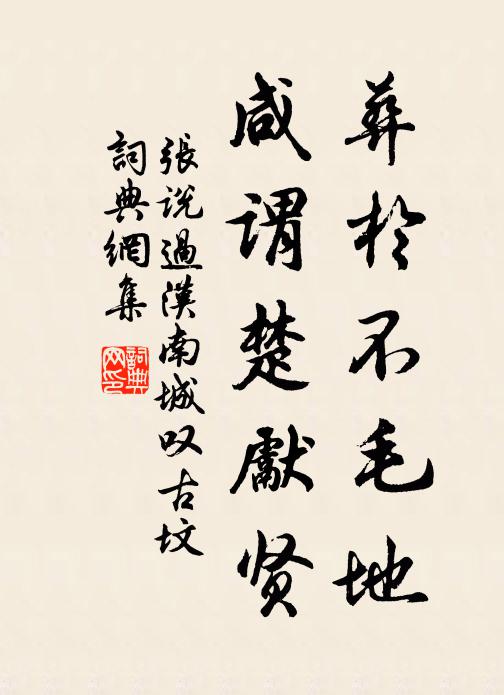 葬於不毛地
咸謂楚獻贤
張说過漢南城叹古坟
詞典網集
詞典
网印